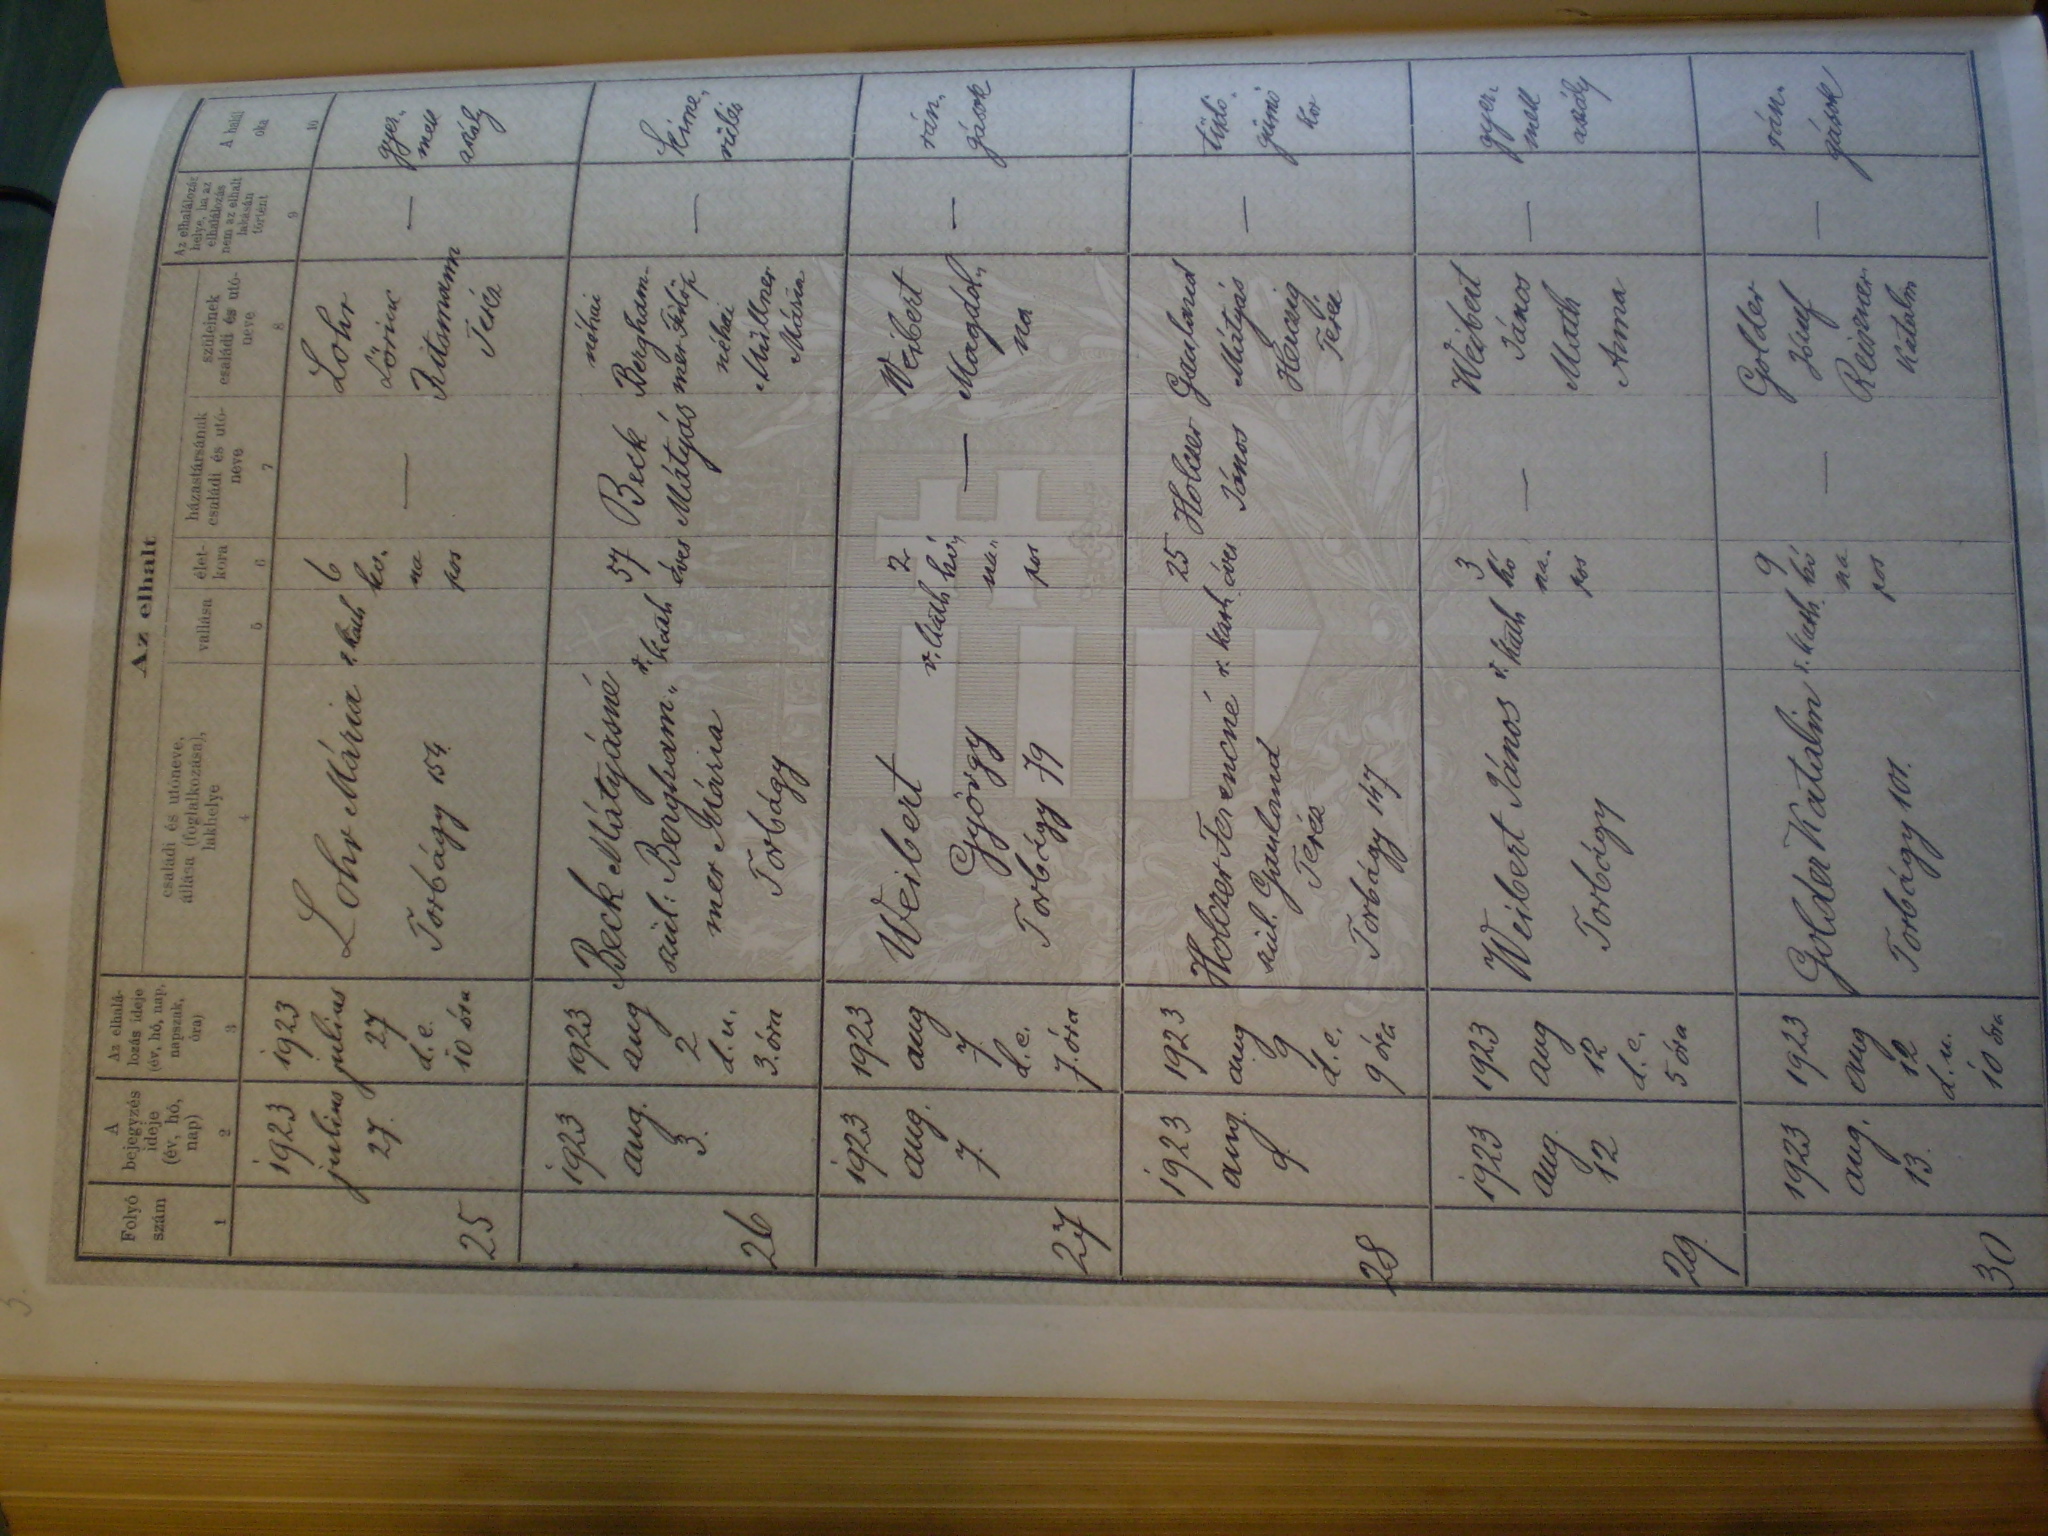 3.
Az elhalt
Folyó
szám
1
A
bejegyzés
ideje
(év, hó,
nap)
2
Az elhalá-
lozás ideje
(év, hó, nap,
napszak,
óra)
3
családi és utóneve,
állása (foglalkozása),
lakhelye
4
vallása
5
élet-
kora
6
házastársának
családi és utó-
neve
7
szüleinek
családi és utó-
neve
8
Az elhalálozás
helye, ha az
elhalálozás
nem az elhalt
lakásán
történt
9
A halál
oka
10
25
1923
julius
27.
1923
julius
27
d. e.
10 óra
Lohr Mária
Torbágy 154.
r. kath
6
hó.
na
pos
—
Lohr
Lőrinc
Ritsmann
Teréz
—
gyer-
mek
aszály
26
1923
aug.
3.
1923
aug
2
d. u.
3. óra
Beck Mátyásné
szül: Bergham„
mer Mária
Torbágy
r. kath
57
éves
Beck
Mátyás
néhai
Bergham-
mer Fülöp
néhai
Müllner
Mária
—
kime„
rülés
27
1923
aug.
7.
1923
aug
7.
d. e.
7. óra
Weibert
György
Torbágy 79
r. kath
2
hó„
na„
pos
—
Weibert
Magdol„
na
—
rán„
gások
28
1923
aug.
9.
1923
aug
9
d. e.
9 óra
Holczer Ferencné
szül. Gauland
Teréz
Torbágy 147
r. kath.
25
éves
Holczer
János
Gauland
Mátyás
Herczig
Teréz
—
tüdő-
gümő
kór
29.
1923
aug.
12
1923
aug
12
d. e.
5 óra
Weibert János
Torbágy
r. kath
3
hó
na-
pos
—
Weibert
János
Math
Anna
—
gyer-
mek
aszály
30
1923
aug.
13.
1923
aug
12
d. u.
10 óra
Golder Katalin
Torbágy 101.
r. kath.
9
hó
na
pos
—
Golder
József
Reisner
Katalin
—
rán-
gások